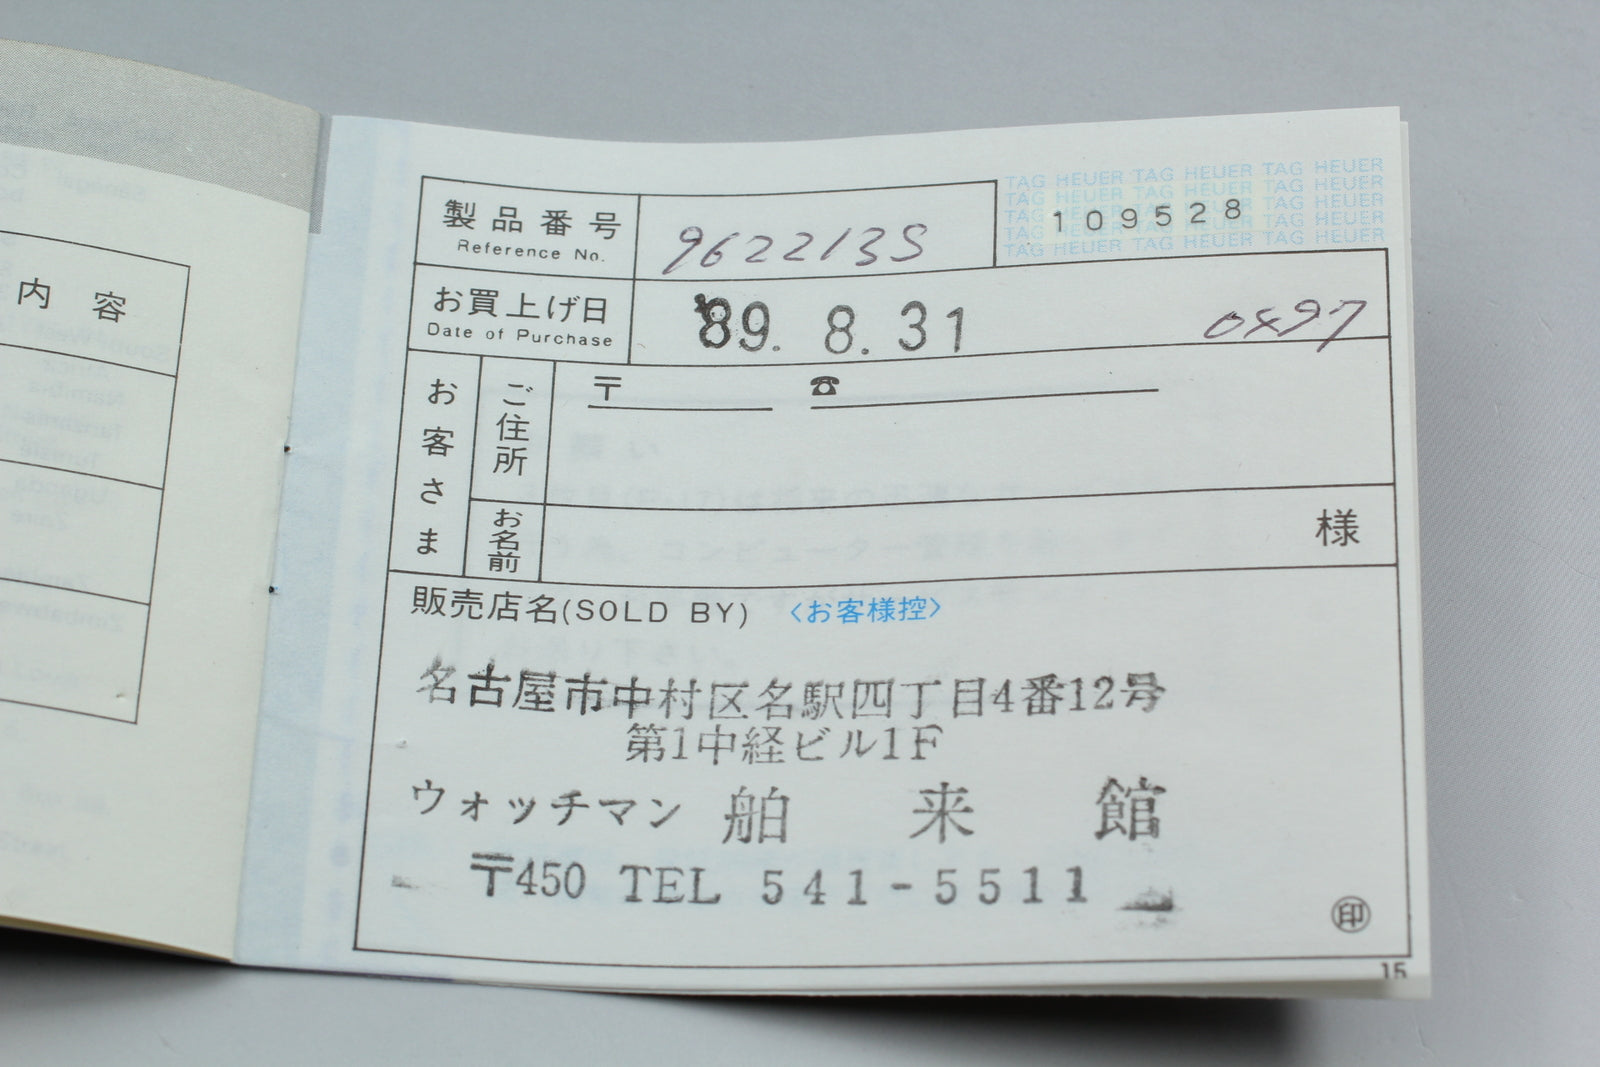 内容
製品番号
Reference No.
962213S
TAG HEUER TAG HEUER TAG HEUER
TAG HEUER TAG HEUER TAG HEUER
TAG HEUER TAG HEUER TAG HEUER
TAG HEUER TAG HEUER TAG HEUER
TAG HEUER TAG HEUER TAG HEUER
109528
お買上げ日
Date of Purchase
'89. 8. 31
0497
お客さま
ご住所
〒 ☎
お名前
様
販売店名(SOLD BY) 〈お客様控〉
名古屋市中村区名駅四丁目4番12号
第1中経ビル1F
ウォッチマン 舶来館
〒450 TEL 541-5511
㊞
15